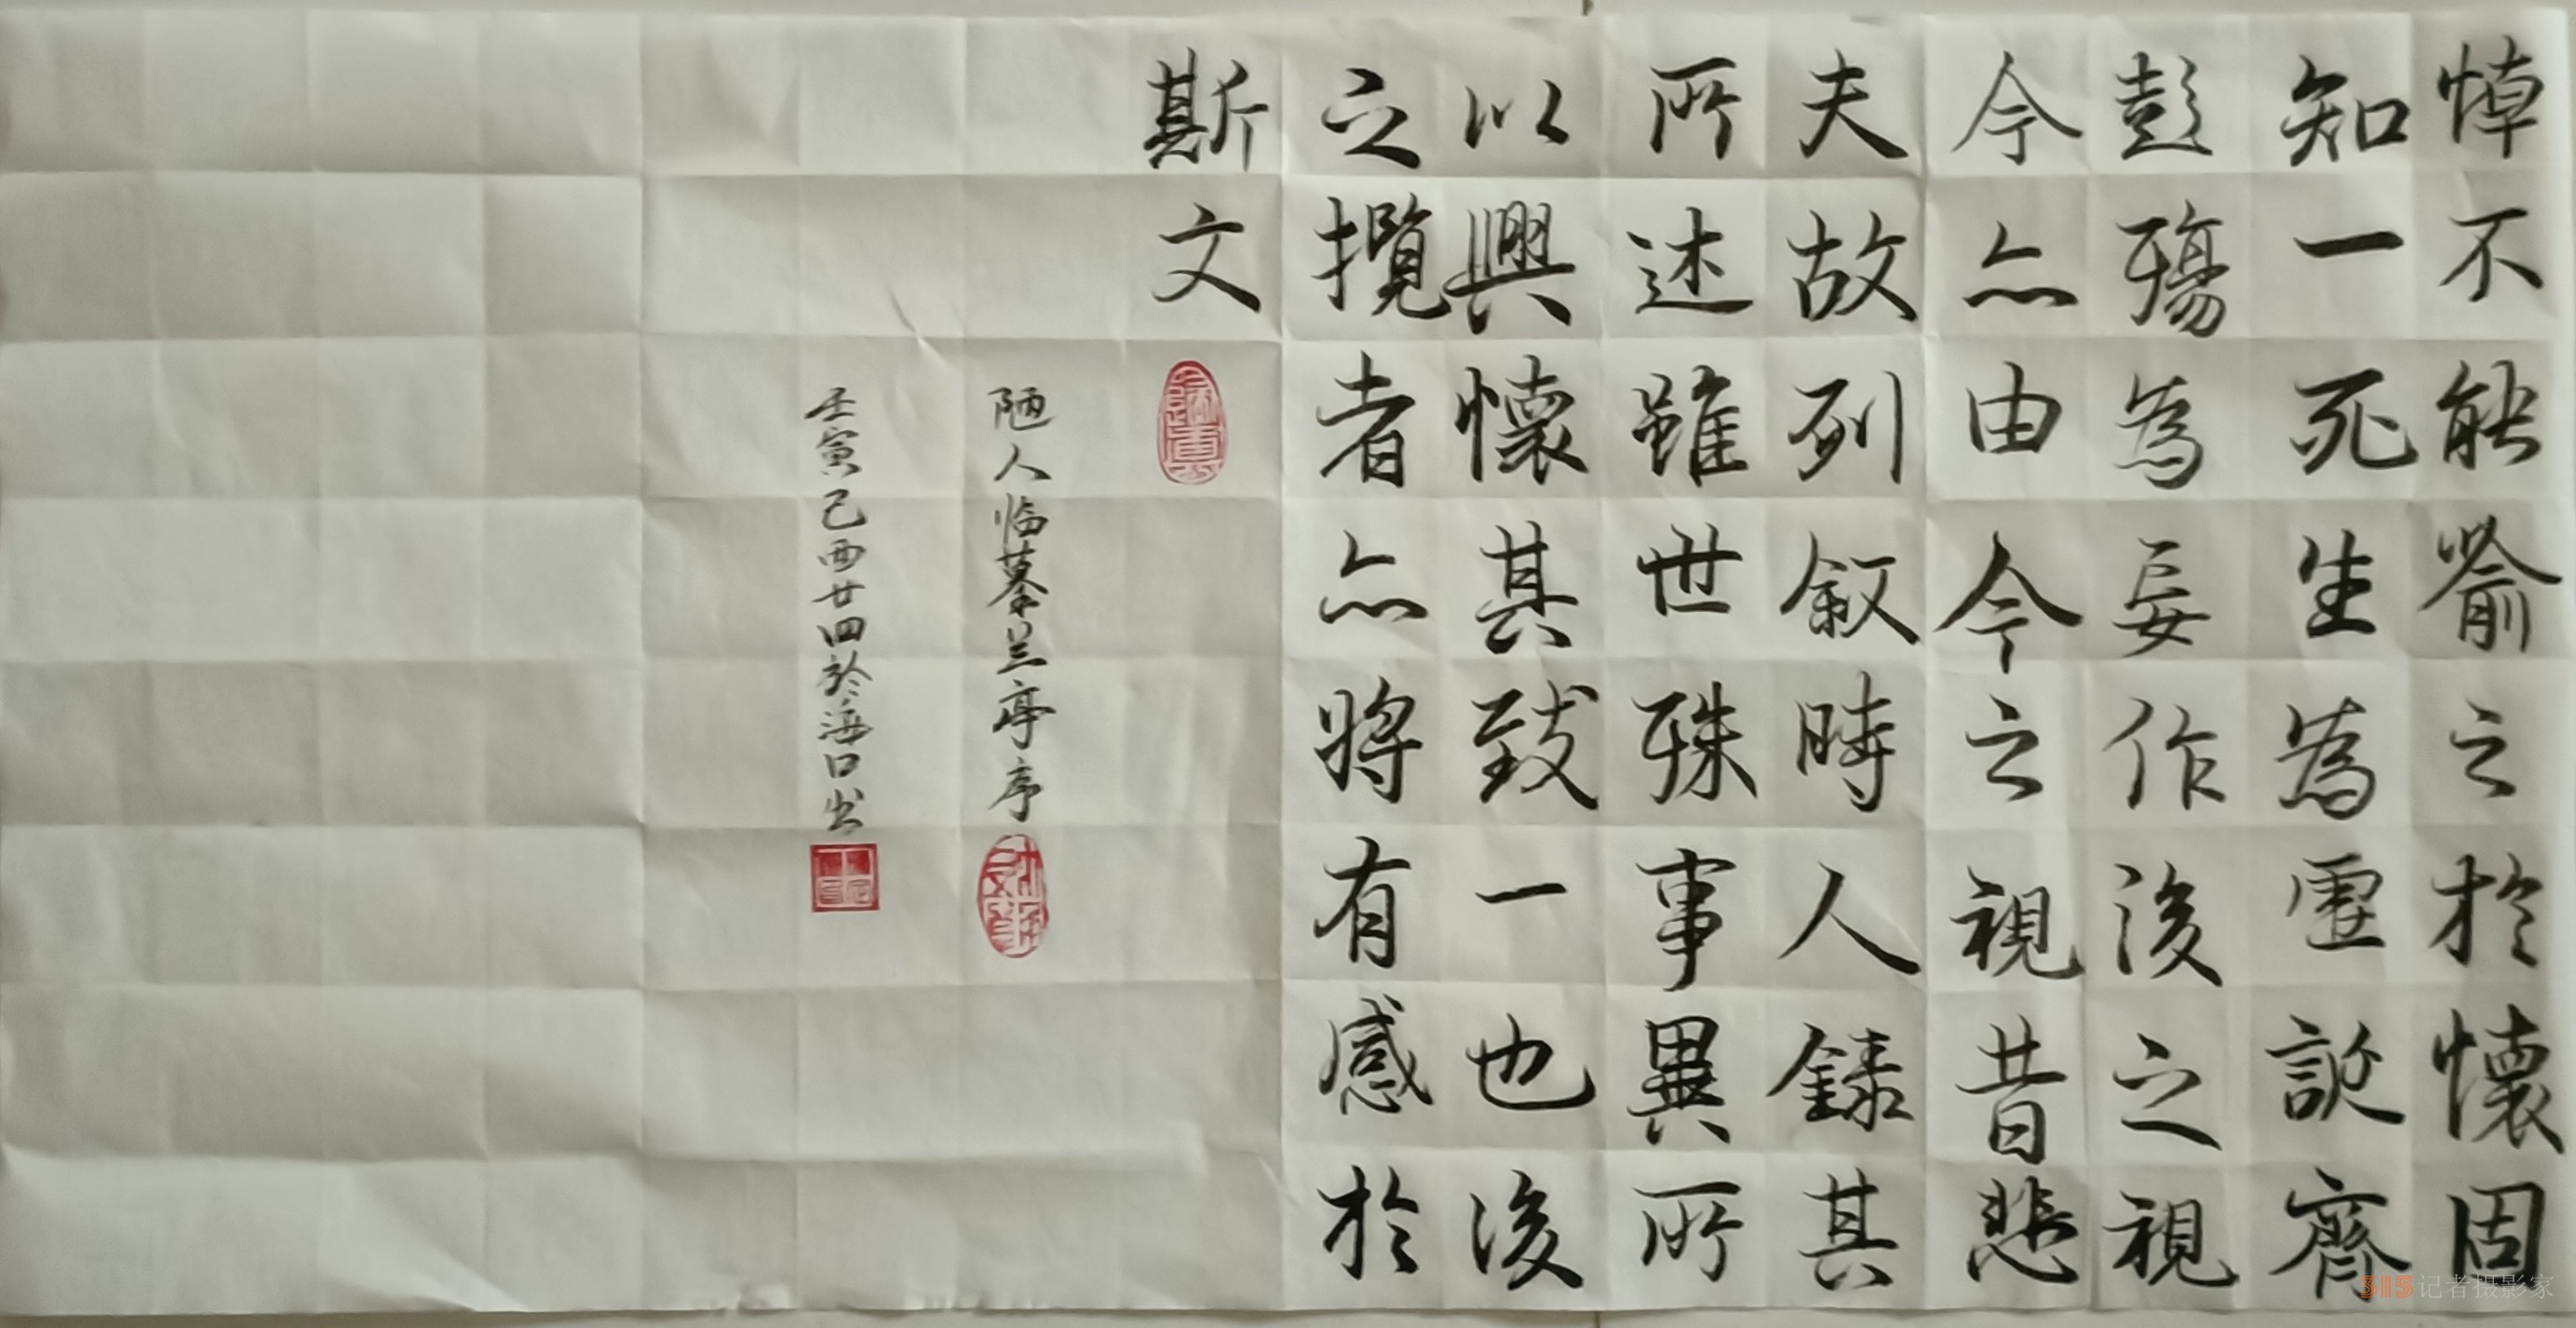 悼不能喻之於懷固
知一死生為虛誕齊
彭殤為妄作後之視
今亦由今之視昔悲
夫故列叙時人錄其
所述雖世殊事異所
以興懷其致一也後
之攬者亦將有感於
斯文
陋人临摹兰亭序
壬寅己酉廿四於海口书
315记者摄影家